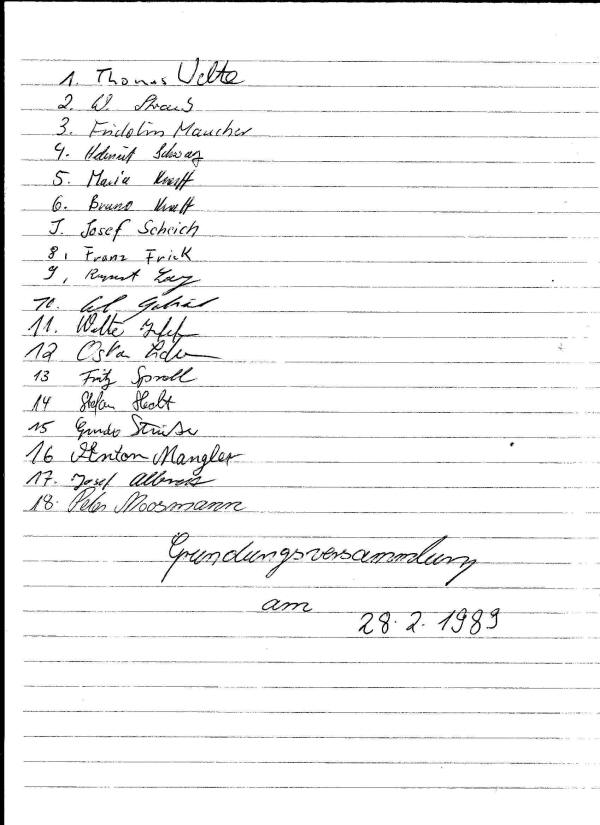 1. Thomas Velte
2. W. Straub
3. Fridolin Maucher
4. Helmut Schwarz
5. Maria Kraft
6. Bruno Kraft
7. Josef Scheich
8, Franz Frick
9, Rupert
10.
11. Walter
12 Oskar
13 Fritz Sproll
14 Stefan Hecht
15 Guido
16 Anton Mangler
17. Josef
18. Peter Moosmann
Gründungsversammlung
am
28.2.1989